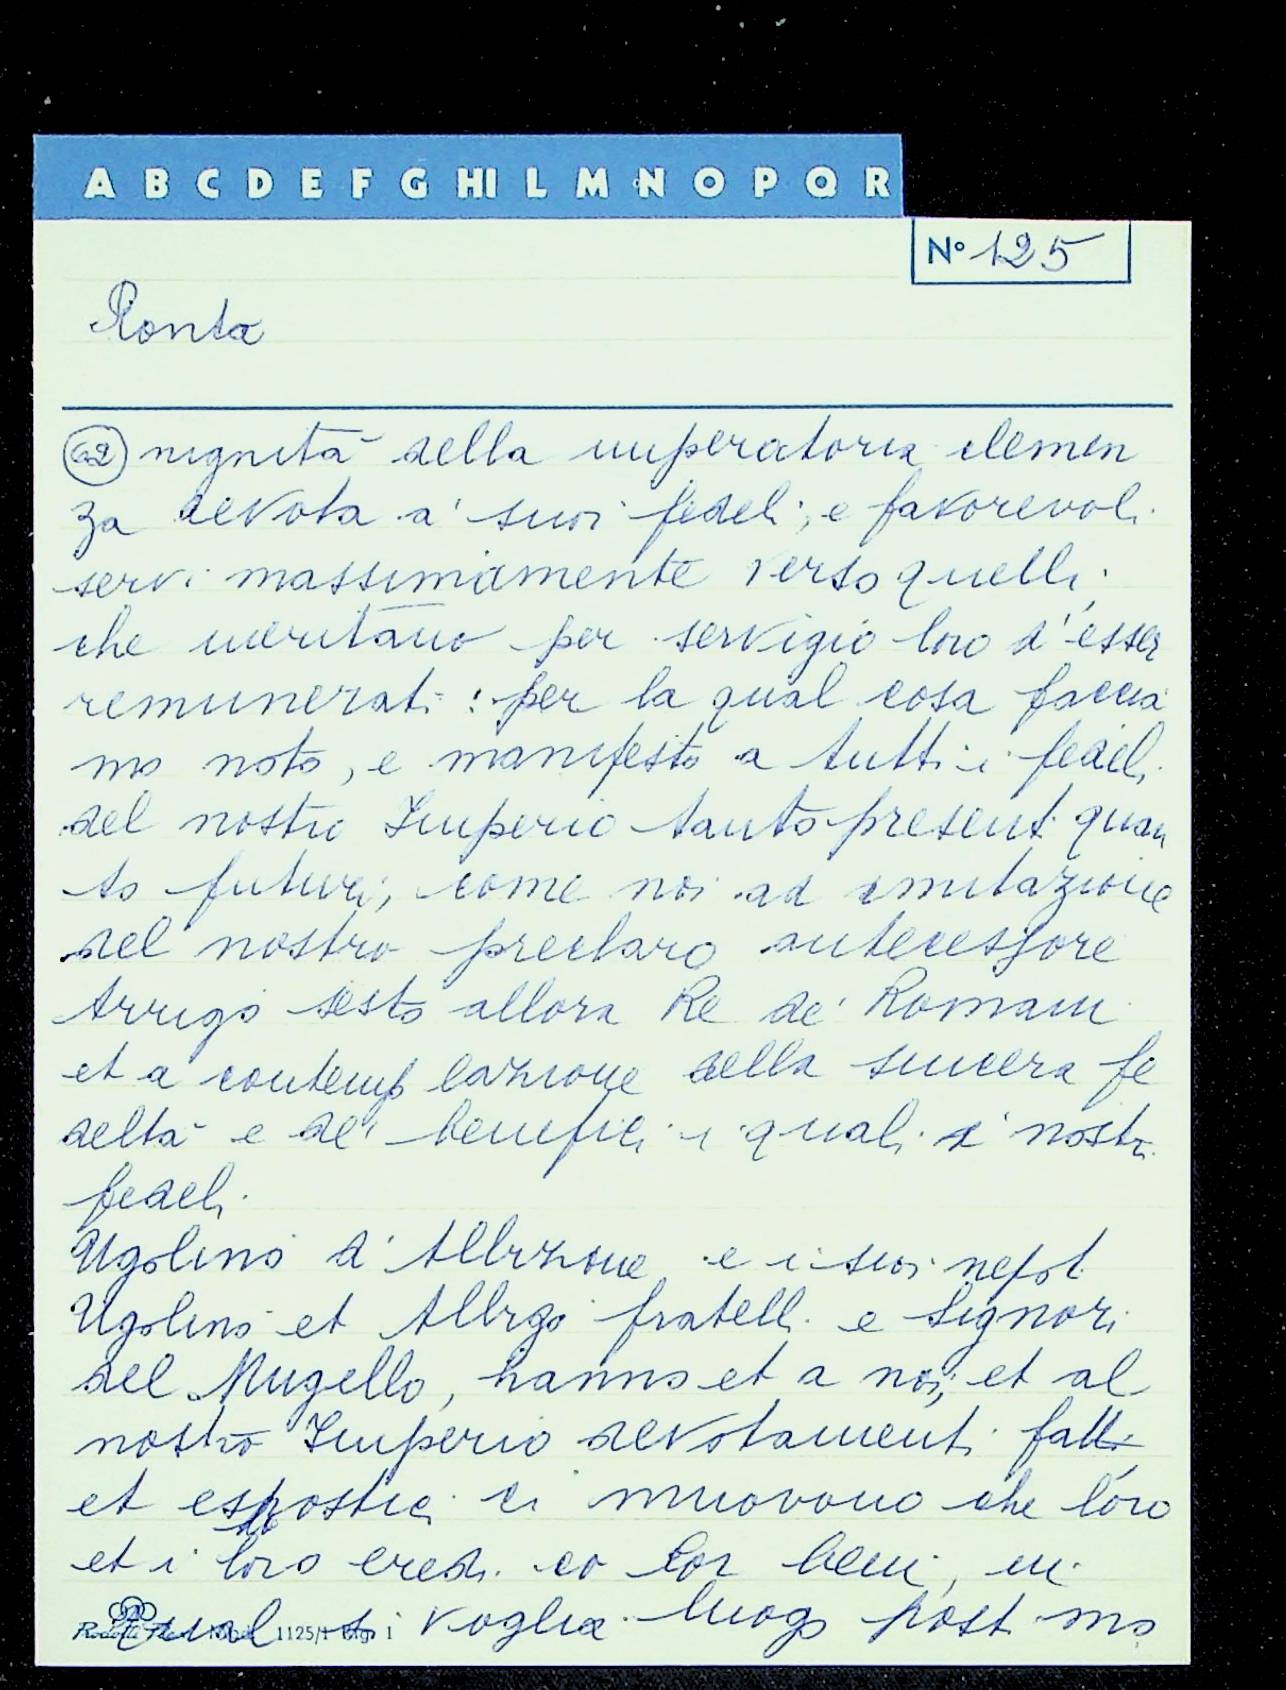 A B C D E F G HI L M N O P Q R
N° 125
Ronta
62 nignità della imperatoria clemen
za devota a' suoi fedeli, e favorevoli
servi massimamente verso quelli,
che meritano per servigio loro d'esser
remunerati: per la qual cosa faccia
mo noto, e manifesto a tutti i fedeli
del nostro Imperio tanto presenti quan
to futuri, come noi ad imitazione
del nostro preclaro antecessore
Arrigo sesto allora Re de' Romani
et a contemplazione della sincera fe
deltà e de' benefici i quali i nostri
fedeli.
Ugolino d'Albizzone e i suoi nepoti
Ugolino et Albizo fratelli e Signori
del Mugello, hanno et a noi, et al
nostro Imperio devotamenti fatti
et espostici ci muovono che loro
et i loro eredi co lor beni, in
qual si voglia luogo posti mo
1125/1